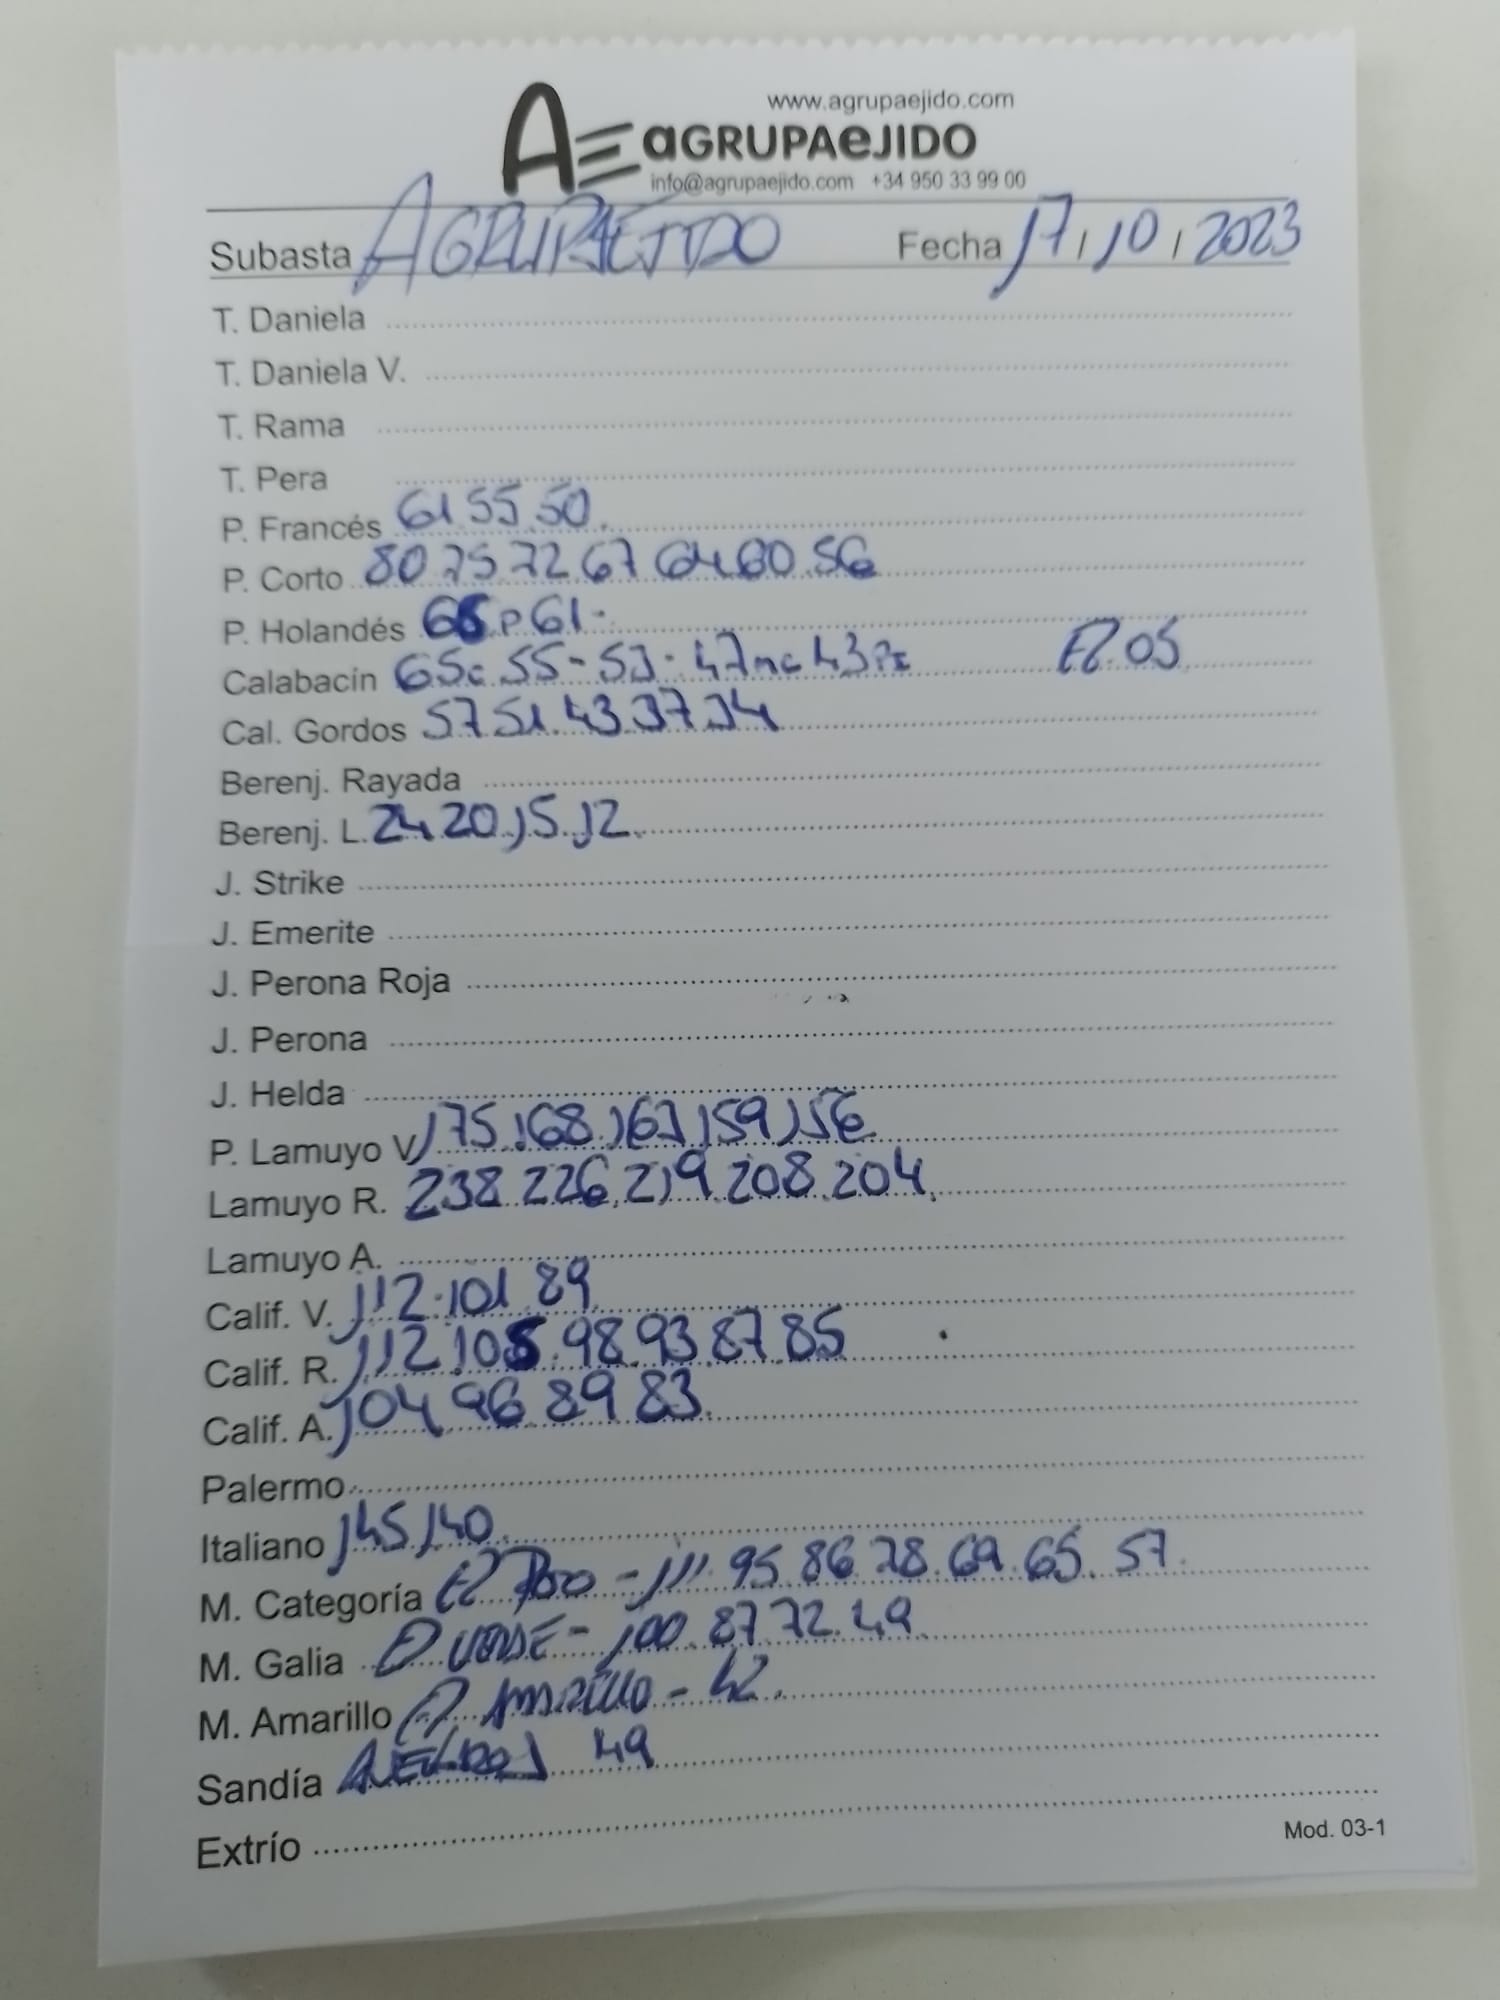 www.agrupaejido.com
AE aGRUPAeJIDO
info@agrupaejido.com +34 950 33 99 00
Subasta AGRUPAEJIDO Fecha 17/10/2023
T. Daniela
T. Daniela V.
T. Rama
T. Pera
P. Francés 61 55 50
P. Corto 80 75 72 67 64 60 56
P. Holandés 66 P 61
Calabacín 65c 55-53-47mc 43 05
Cal. Gordos 57 51 43 37 34
Berenj. Rayada
Berenj. L. 24 20 15 12
J. Strike
J. Emerite
J. Perona Roja
J. Perona
J. Helda
P. Lamuyo V. 175 168 163 159 156
Lamuyo R. 238 226 219 208 204
Lamuyo A.
Calif. V. 112 101 89
Calif. R. 112 105 98 93 87 85
Calif. A. 104 96 89 83
Palermo
Italiano 145 140
M. Categoría - 111 95 86 78 69 65 57
M. Galia VERDE - 100 87 72 49
M. Amarillo AMARILLO - 42
Sandía 49
Extrío
Mod. 03-1